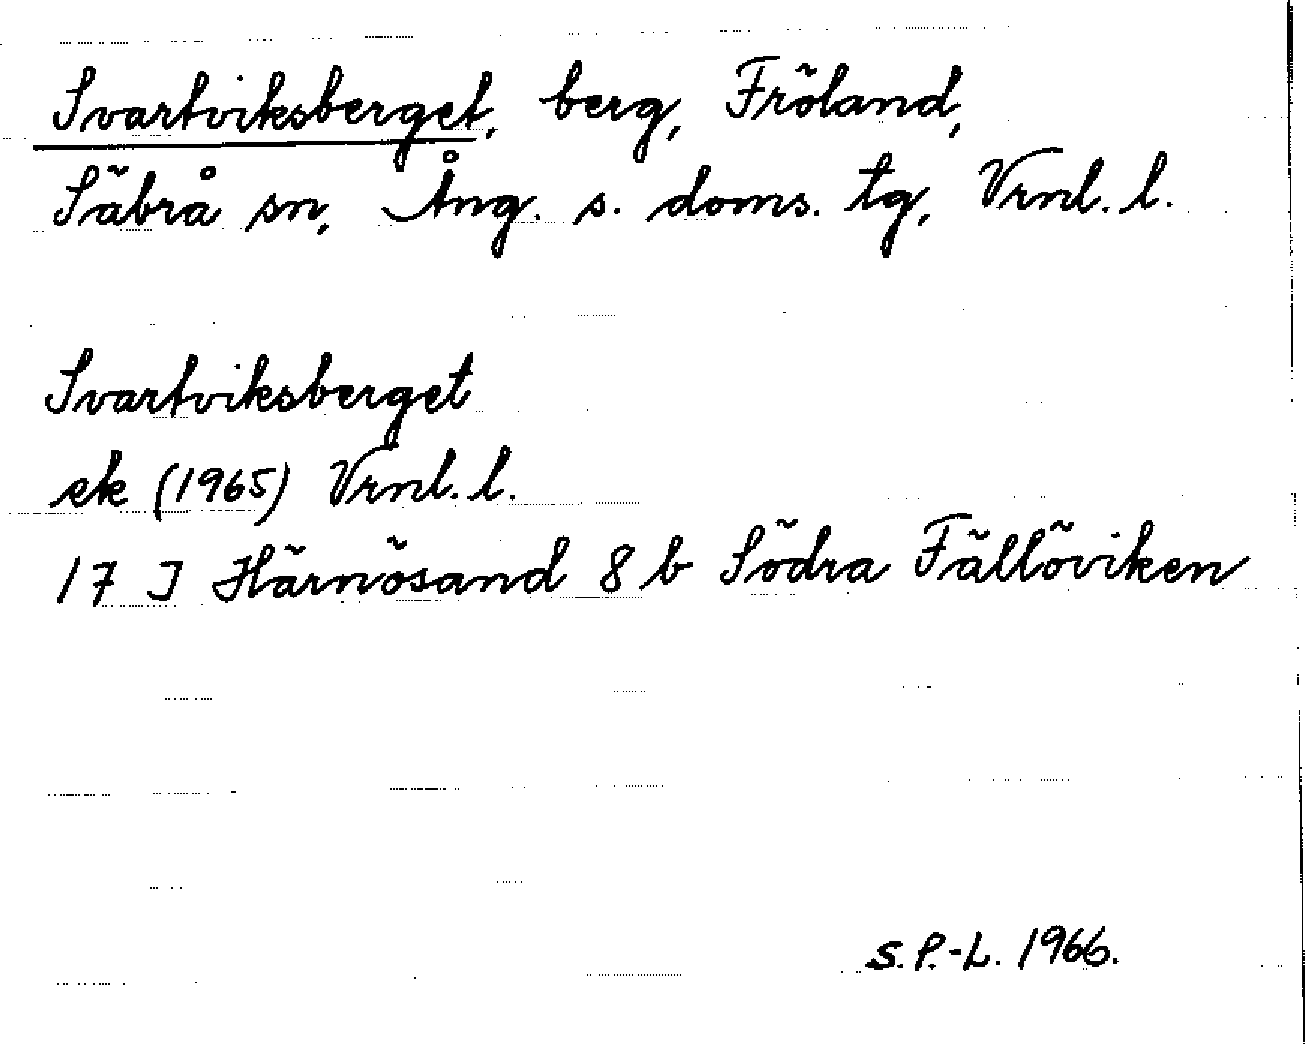 Svartviksberget, berg, Fröland,
Säbrå sn, Ång. s. doms. tg, Vrnl. l.
Svartviksberget
ek (1965) Vrnl. l.
17 I Härnösand 8 b Södra Fällöviken
S. P.-L. 1966.